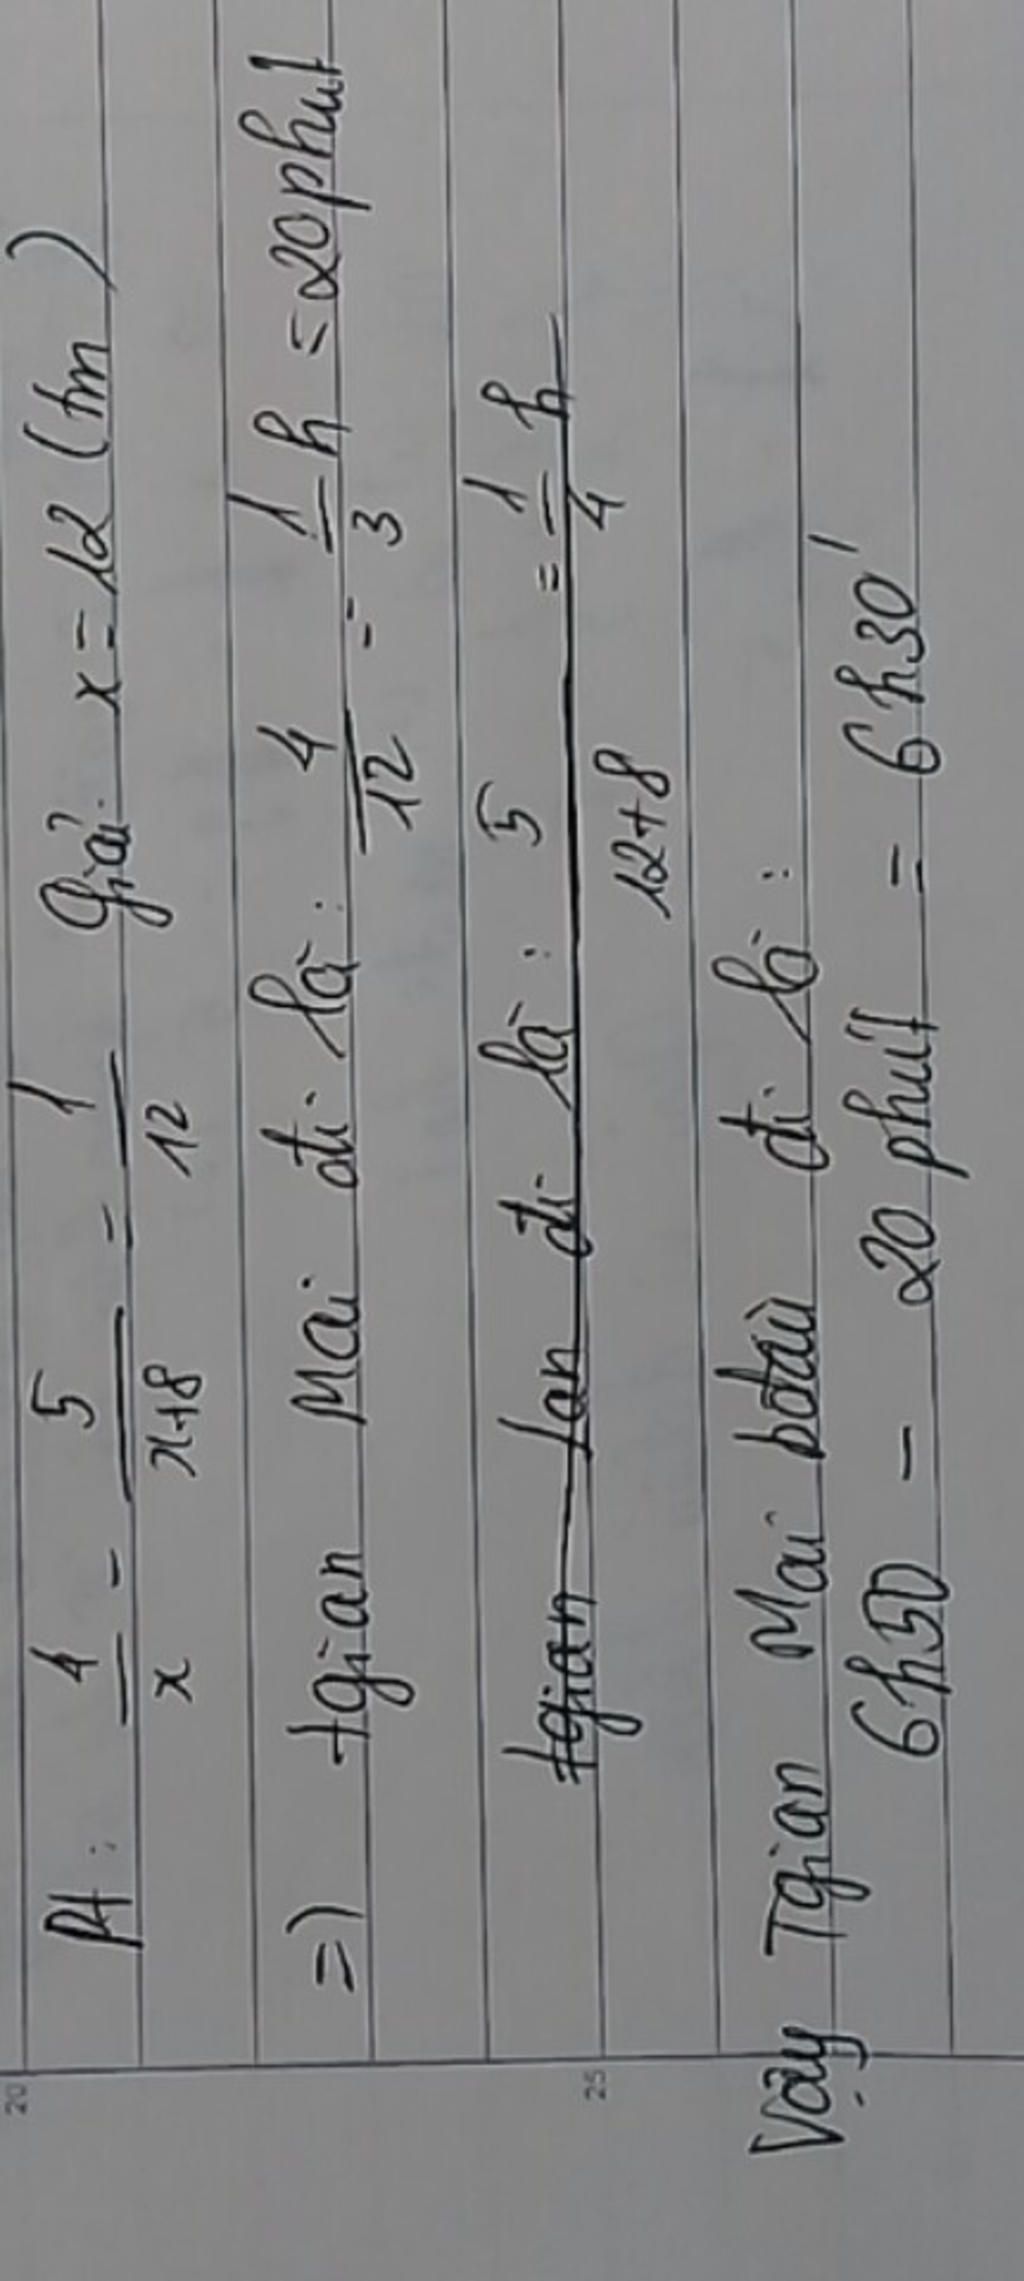 20
Pt: 4/x - 5/x+8 = 1/12 Giải x = 12 (tm)
=) tgian Mai đi là: 4/12 = 1/3 h = 20 phut
25
tgian Lan đi là: 5/12+8 = 1/4 h
Vậy Tgian Mai bđầu đi là:
6h50 - 20 phút = 6h30'